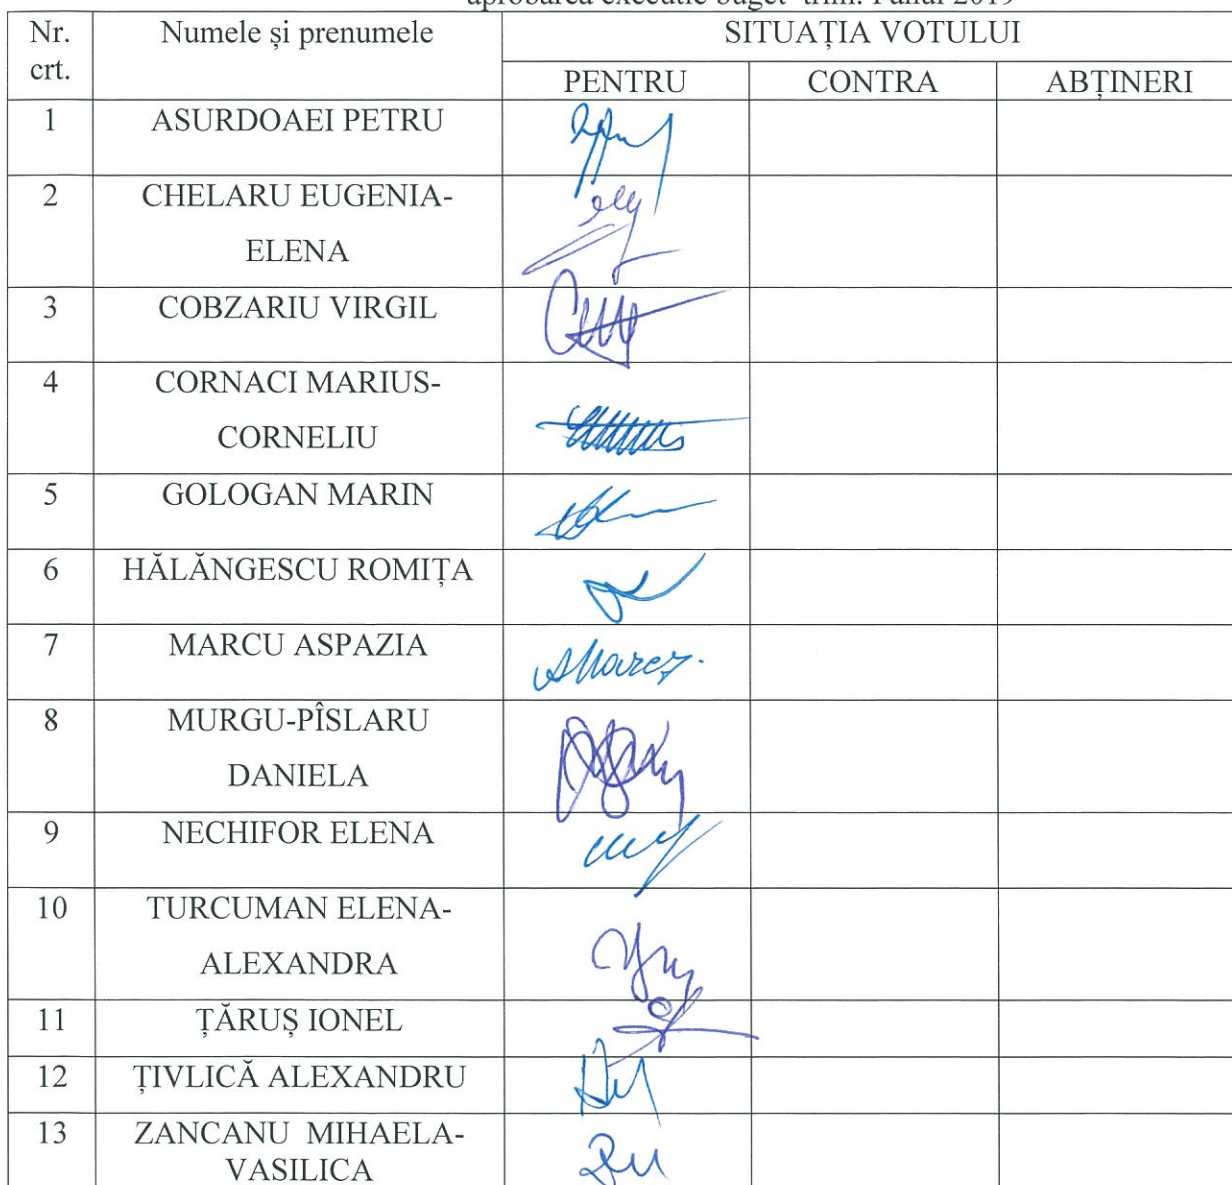 aprobarea execuție buget trim. I anul 2019
Nr. crt.
Numele și prenumele
SITUAȚIA VOTULUI
PENTRU
CONTRA
ABȚINERI
1
ASURDOAEI PETRU
2
CHELARU EUGENIA-
ELENA
3
COBZARIU VIRGIL
4
CORNACI MARIUS-
CORNELIU
5
GOLOGAN MARIN
6
HĂLĂNGESCU ROMIȚA
7
MARCU ASPAZIA
8
MURGU-PÎSLARU
DANIELA
9
NECHIFOR ELENA
10
TURCUMAN ELENA-
ALEXANDRA
11
ȚĂRUȘ IONEL
12
ȚIVLICĂ ALEXANDRU
13
ZANCANU MIHAELA-
VASILICA